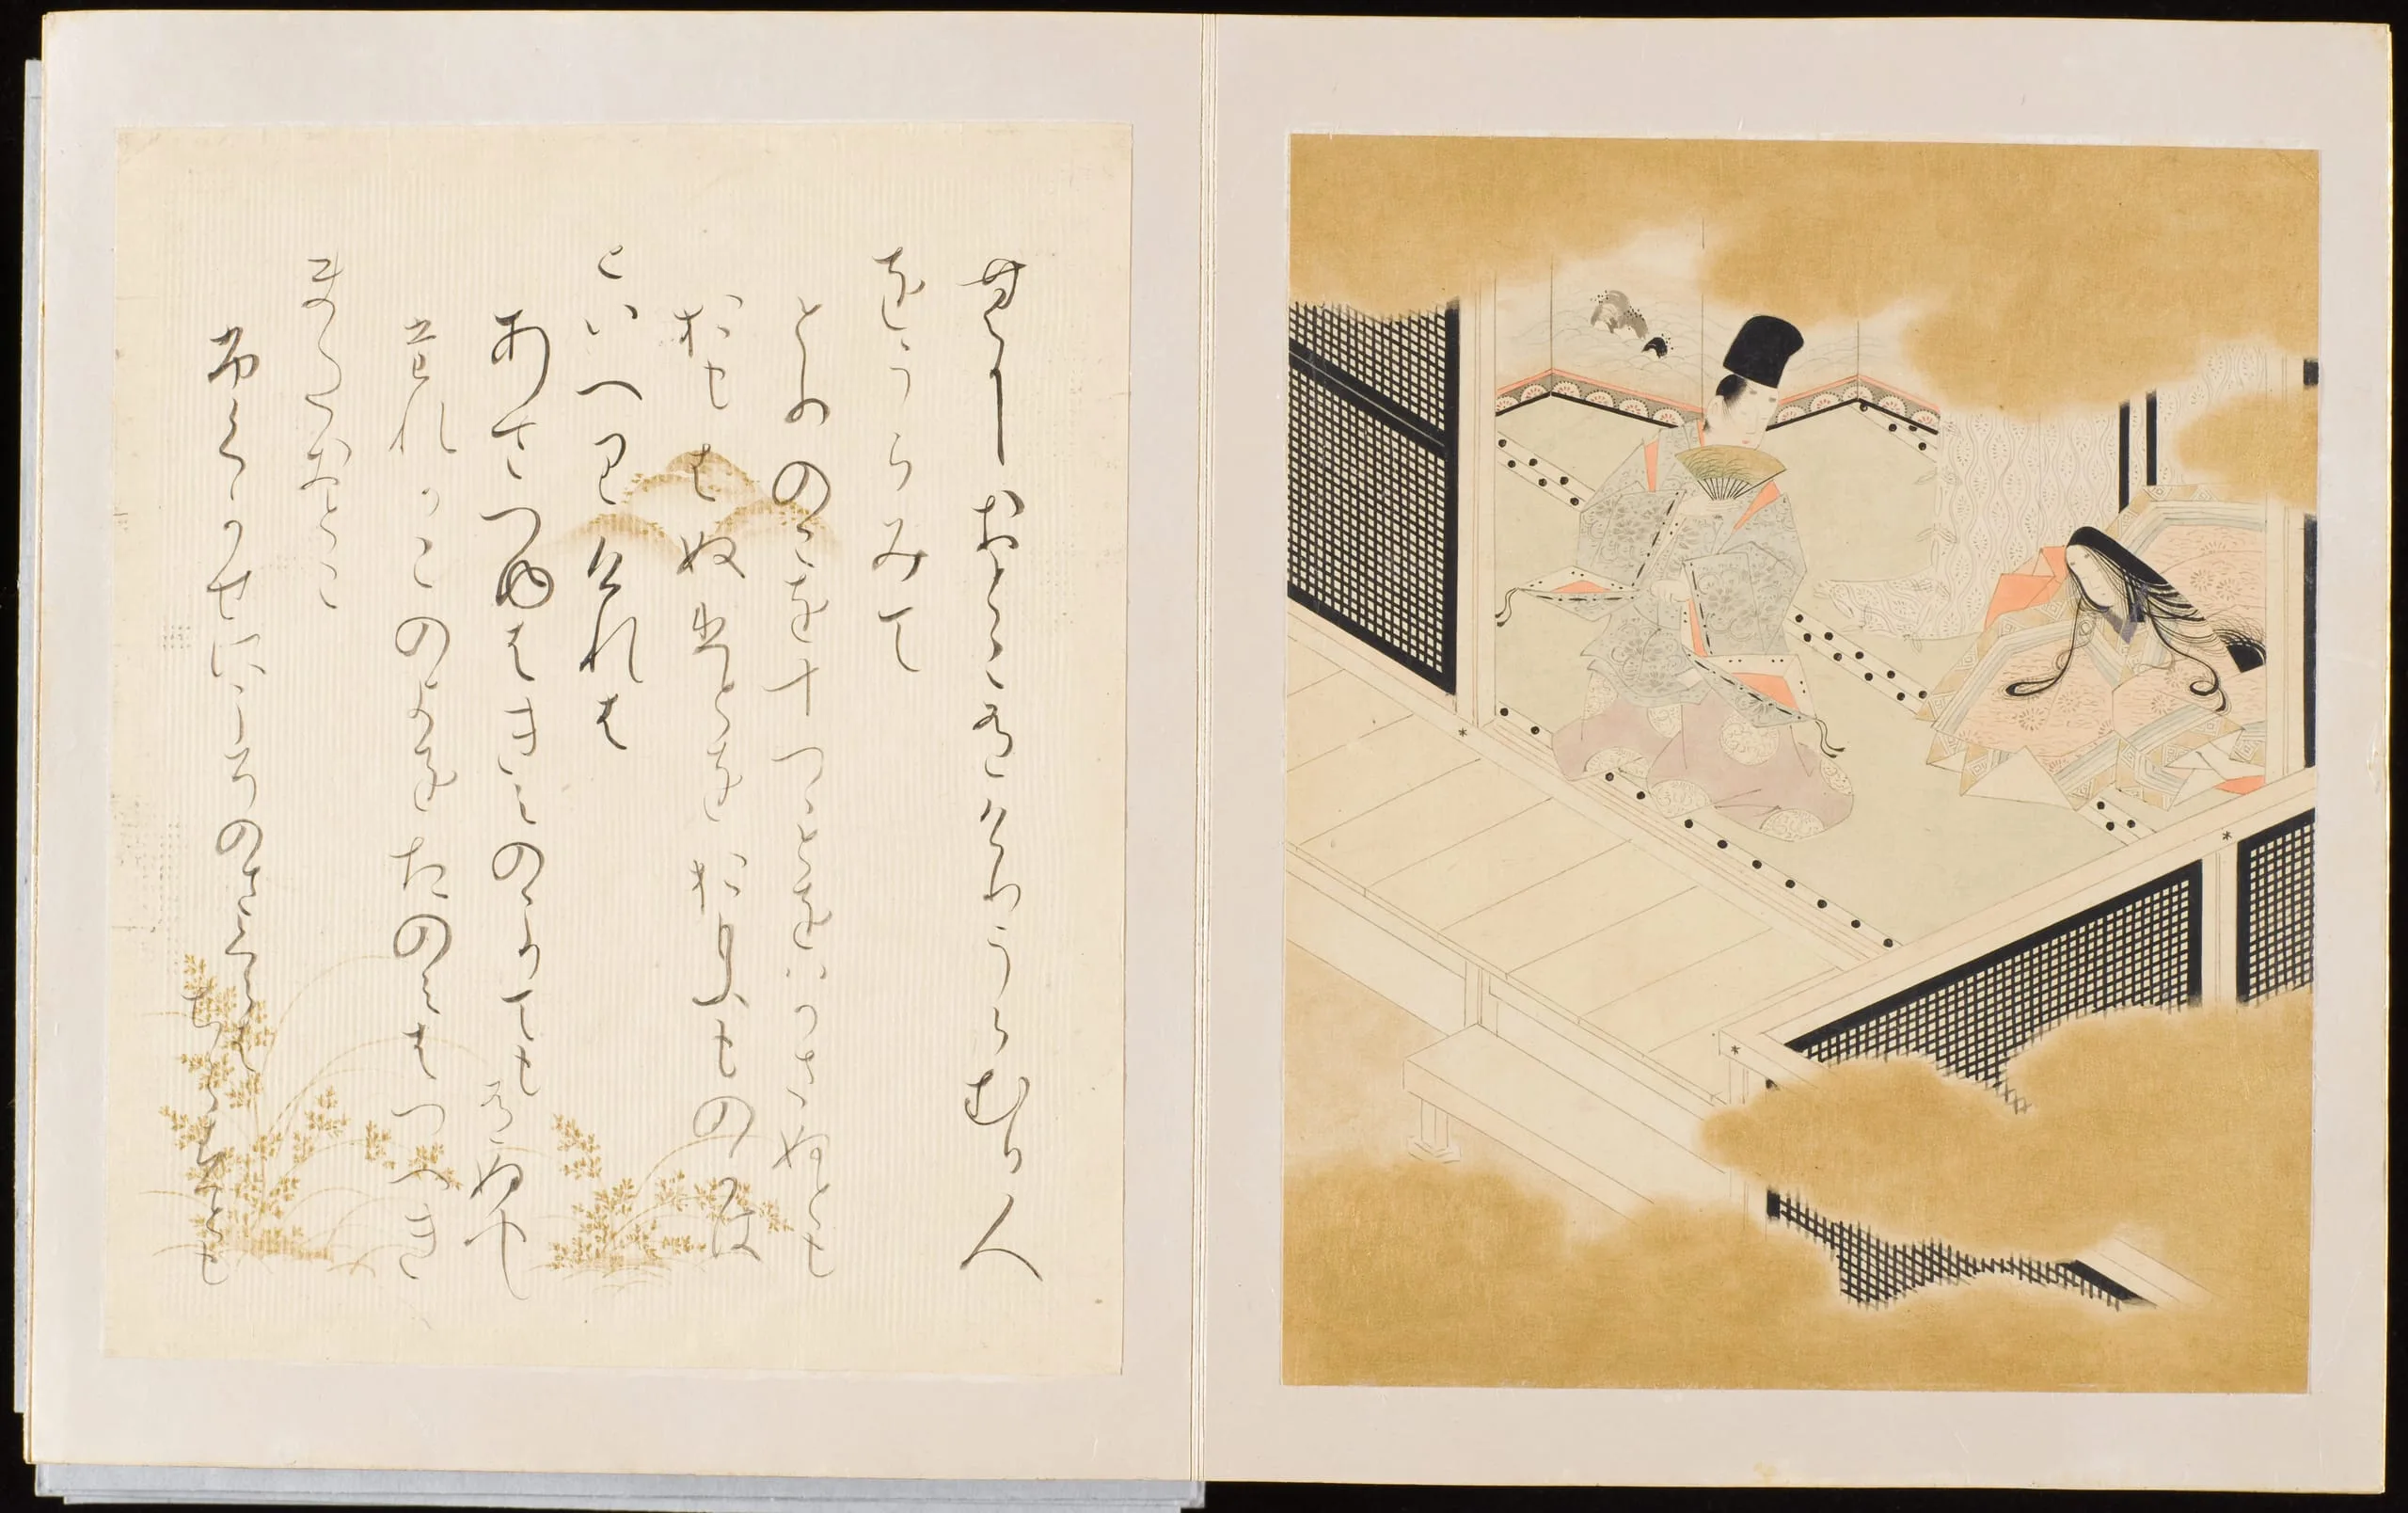 むかしおとこありけりうらむる人
をうらみて
とりのこを十つゝとをはかさぬとも
おもはぬひとをおもふものかは
といへりけれは
あさつゆはきえのこりてもありぬへし
たれかこのよをたのみはつへき
またおとこ
ふくかせにこそのさくらはちらすとも